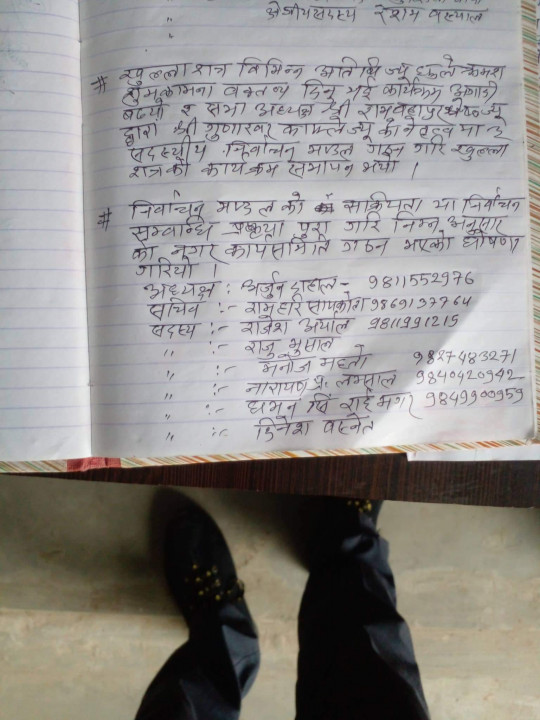 क्षेत्रीय सदस्य रेशम वस्याल
"
"
# खुल्ला शत्र विभिन्न अतिथि ज्यू हरुले क्रमश
शुभकामना वक्तव्य दिनु भई कार्यक्रम अगाडी
बढ्यो र सभा अध्यक्ष श्री रामबहादुर श्रेष्ठ ज्यू
द्वारा श्री गुणारवर काफ्ले ज्यू को नेतृत्व मा ३
सदस्यीय निर्वाचन मण्डल गठन गरि खुल्ला
शत्रको कार्यक्रम समापन भयो ।
# निर्वाचन मण्डल को सक्रियता मा निर्वाचन
सम्बन्धि प्रक्रया पुरा गरि निम्न अनुसार
का नगर कार्यसमिति गठन भएको घोषणा
गरियो ।
अध्यक्ष : अर्जुन दाहाल - 9811552976
सचिव :- रामहरि सापकोटा 9869197764
सदस्य :- राजेश अर्याल 9811991215
" :- राजु भुसाल
" मनोज महतो 9887483271
" :- नारायण प्र. लम्साल 9840420942
" :- धमन सिं राई मगर 9849900959
" :- दिनेश वस्नेत